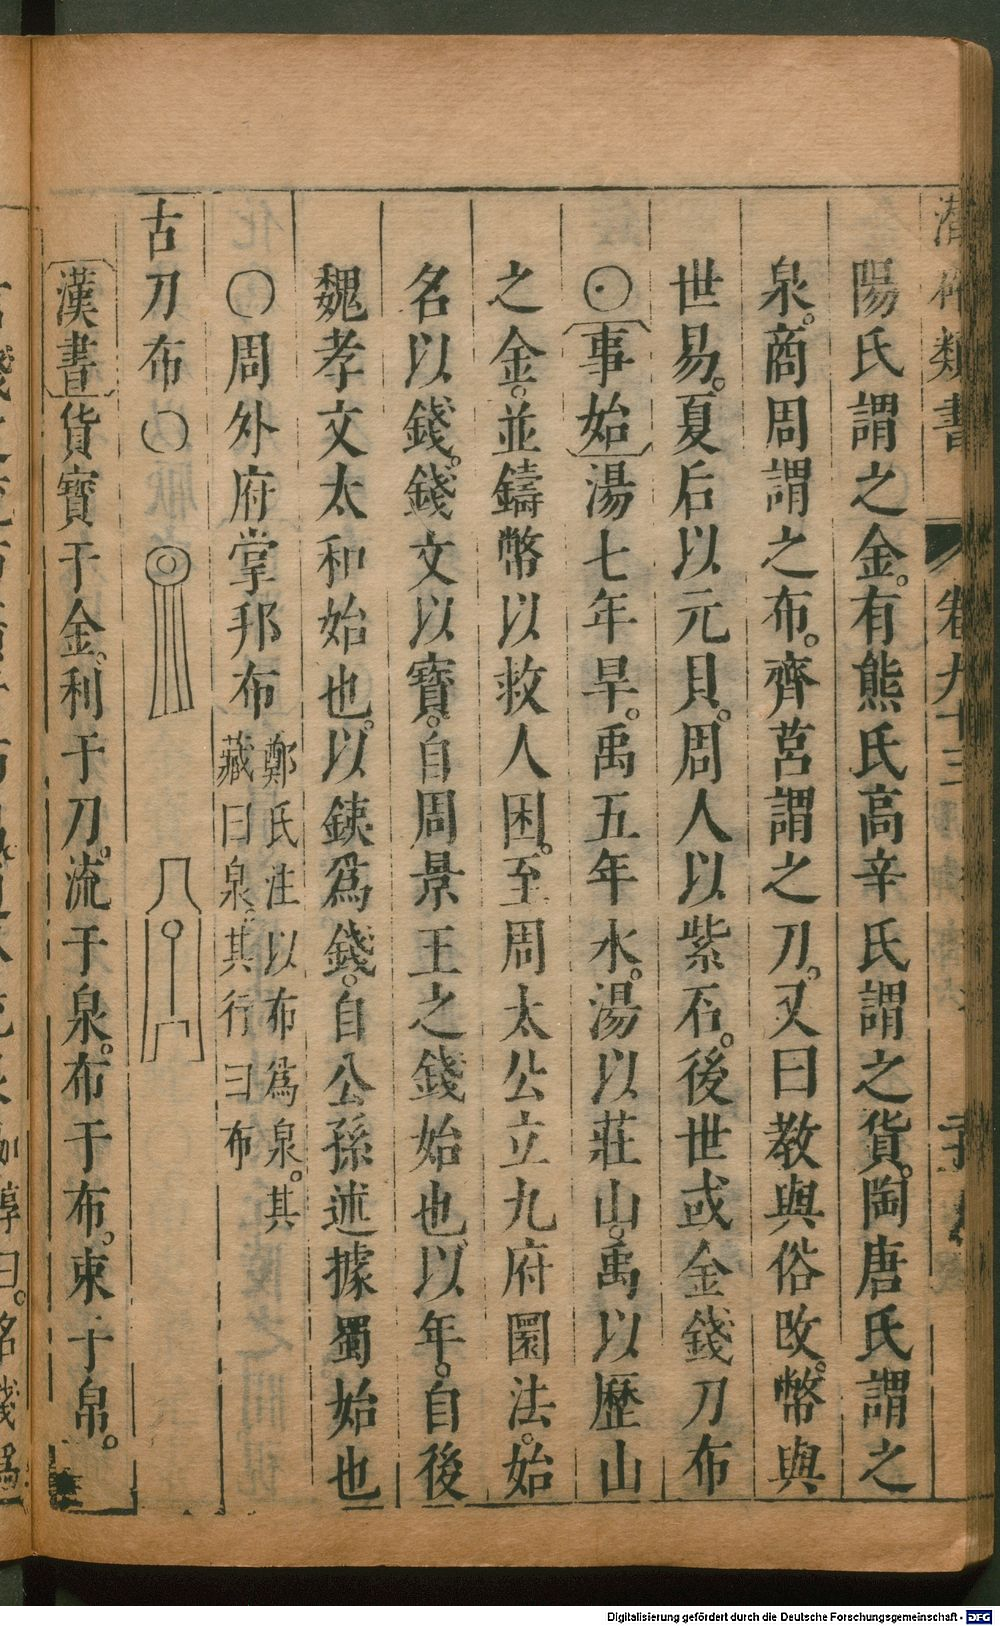 潛確類書 卷九十三
陽氏謂之金。有熊氏高辛氏謂之貨。陶唐氏謂之
泉。商周謂之布。齊莒謂之刀。又曰教與俗改。幣與
世易。夏后以元貝。周人以紫石。後世或金錢刀布
〇事始湯七年旱。禹五年水。湯以莊山。禹以歷山
之金。並鑄幣以救人困。至周太公立九府圜法。始
名以錢。錢文以寶。自周景王之錢始也。以年。自後
魏孝文太和始也。以鐵爲錢。自公孫述據蜀始也
〇周外府掌邦布鄭氏注以布爲泉。其
藏曰泉。其行曰布
古刀布〇
漢書貨寶于金。利于刀。流于泉。布于布。束于帛。
Digitalisierung gefördert durch die Deutsche Forschungsgemeinschaft - DFG